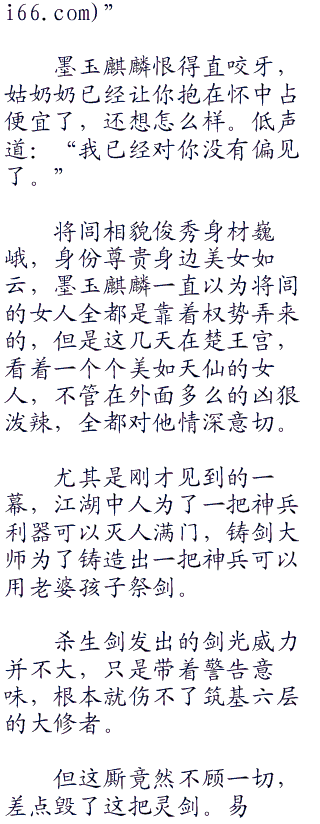 i66.com)”
墨玉麒麟恨得直咬牙，
姑奶奶已经让你抱在怀中占
便宜了，还想怎么样。低声
道：“我已经对你没有偏见
了。”
将闾相貌俊秀身材巍
峨，身份尊贵身边美女如
云，墨玉麒麟一直以为将闾
的女人全都是靠着权势弄来
的，但是这几天在楚王宫，
看着一个个美如天仙的女
人，不管在外面多么的凶狠
泼辣，全都对他情深意切。
尤其是刚才见到的一
幕，江湖中人为了一把神兵
利器可以灭人满门，铸剑大
师为了铸造出一把神兵可以
用老婆孩子祭剑。
杀生剑发出的剑光威力
并不大，只是带着警告意
味，根本就伤不了筑基六层
的大修者。
但这厮竟然不顾一切，
差点毁了这把灵剑。易